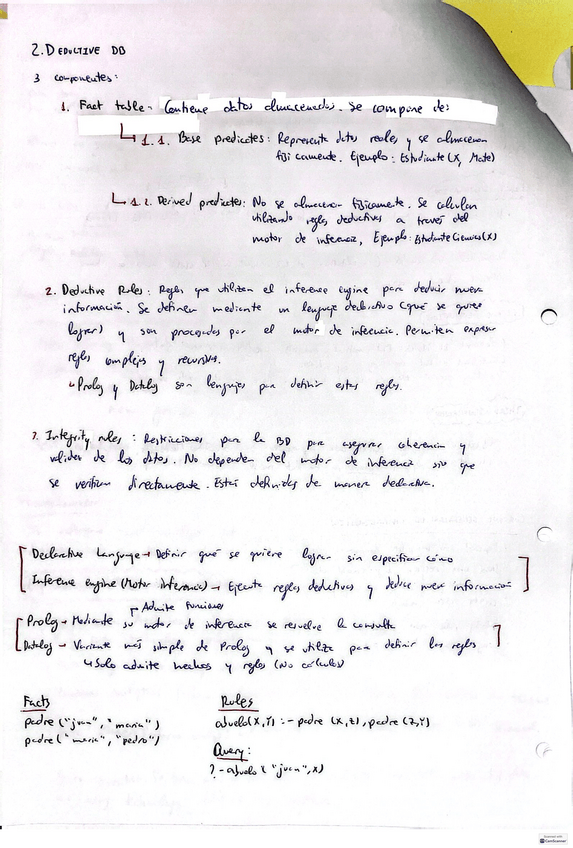 2. DEDUCTIVE DB
3 componentes:
1. Fact table → Contiene datos almacenados. Se compone de:
↳ 1.1. Base predicates: Representa datos reales y se almacenan
físicamente. Ejemplo: Estudiante (X, Mate)
↳ 1.2. Derived predicates: No se almacenan físicamente. Se calculan
utilizando reglas deductivas a través del
motor de inferencia, Ejemplo: EstudianteCiencias(X)
2. Deductive Rules: Reglas que utilizan el inference engine para deducir nueva
información. Se definen mediante un lenguaje declarativo (qué se quiere
lograr) y son procesadas por el motor de inferencia. Permiten expresar
reglas complejas y recursivas.
↳ Prolog y Datalog son lenguajes para definir estas reglas.
3. Integrity rules: Restricciones para la BD para asegurar coherencia y
validez de los datos. No dependen del motor de inferencia sino que
se verifican directamente. Están definidas de manera declarativa.
Declarative Language → Definir qué se quiere lograr sin especificar cómo
Inference engine (Motor inferencia) → Ejecuta reglas deductivas y deduce nueva información
Admite funciones
Prolog → Mediante su motor de inferencia se resuelve la consulta
Datalog → Variante más simple de Prolog y se utiliza para definir las reglas
↳ Solo admite hechos y reglas (No cálculos)
Facts
padre ("juan", "maria")
padre ("maria", "pedro")
Rules
abuelo(X,Y) :- padre (X,Z), padre (Z,Y)
Query:
? - abuelo ("juan", X)
Scanned with
CamScanner